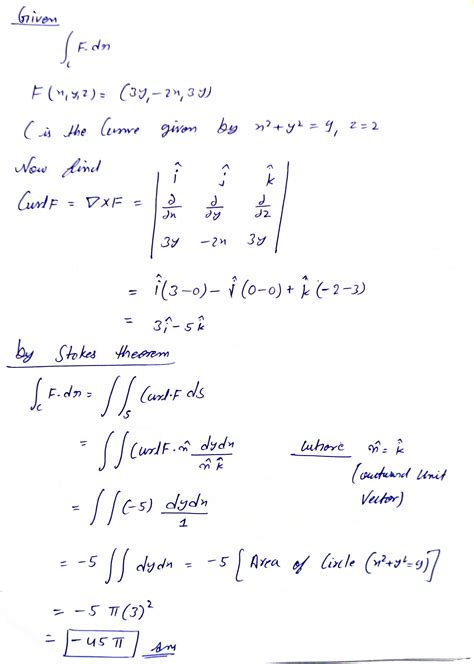 Given
∫_c F.dr
F(x,y,z) = (3y,-2x,3y)
C is the Curve given by x²+y²=9, z=2
Now find
Curl F = ∇×F = | î ĵ k̂
∂/∂x ∂/∂y ∂/∂z
3y -2x 3y |
= î(3-0) - ĵ(0-0) + k̂(-2-3)
= 3î-5k̂
by Stokes theorem
∫_c F.dr = ∬_S Curl.F ds
= ∬ Curl F. n̂ dydx/n̂.k̂ where n̂ = k̂
(outward Unit
Vector)
= ∬(-5) dydx/1
= -5 ∬ dydx = -5 [Area of Circle (x²+y²=9)]
= -5 π(3)²
= -45π Ans